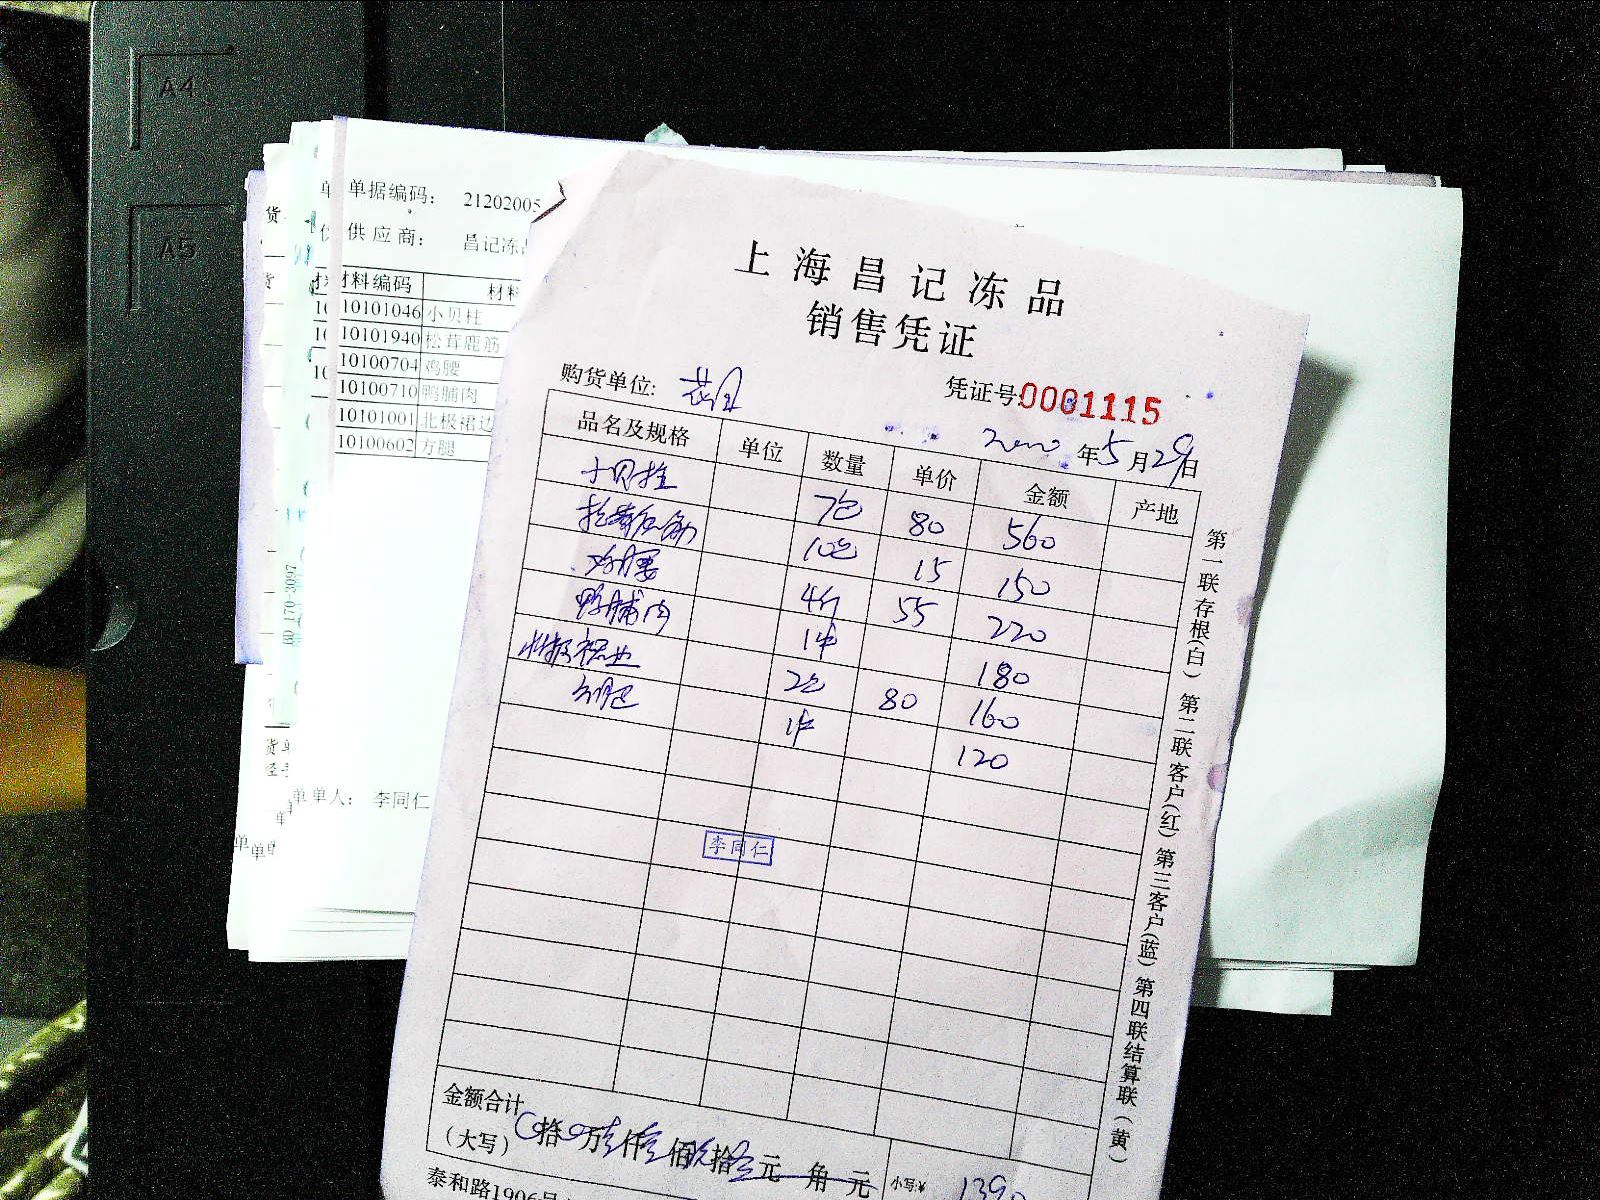 A4
A5
单 单据编码： 21202005
供 供应商： 昌记冻品
材料编码 材料
10101046 小贝柱
10101940 松茸鹿筋
10100704 鸡腰
10100710 鸭脯肉
10101001 北极裙边
10100602 方腿
单单人： 李同仁
上海昌记冻品
销售凭证
购货单位: 花月
凭证号:0001115
2020 年 5 月 29 日
品名及规格 单位 数量 单价 金额 产地
小贝柱 7包 80 560
松茸鹿筋 10包 15 150
鸡腰 4斤 55 220
鸭脯肉 1件 180
北极裙边 2包 80 160
方腿 1件 120
李同仁
金额合计
（大写） 0拾0万壹仟叁佰玖拾 元 角 元 小写:¥ 1390
泰和路1906号
第一联存根(白) 第二联客户(红) 第三客户(蓝) 第四联结算联(黄)